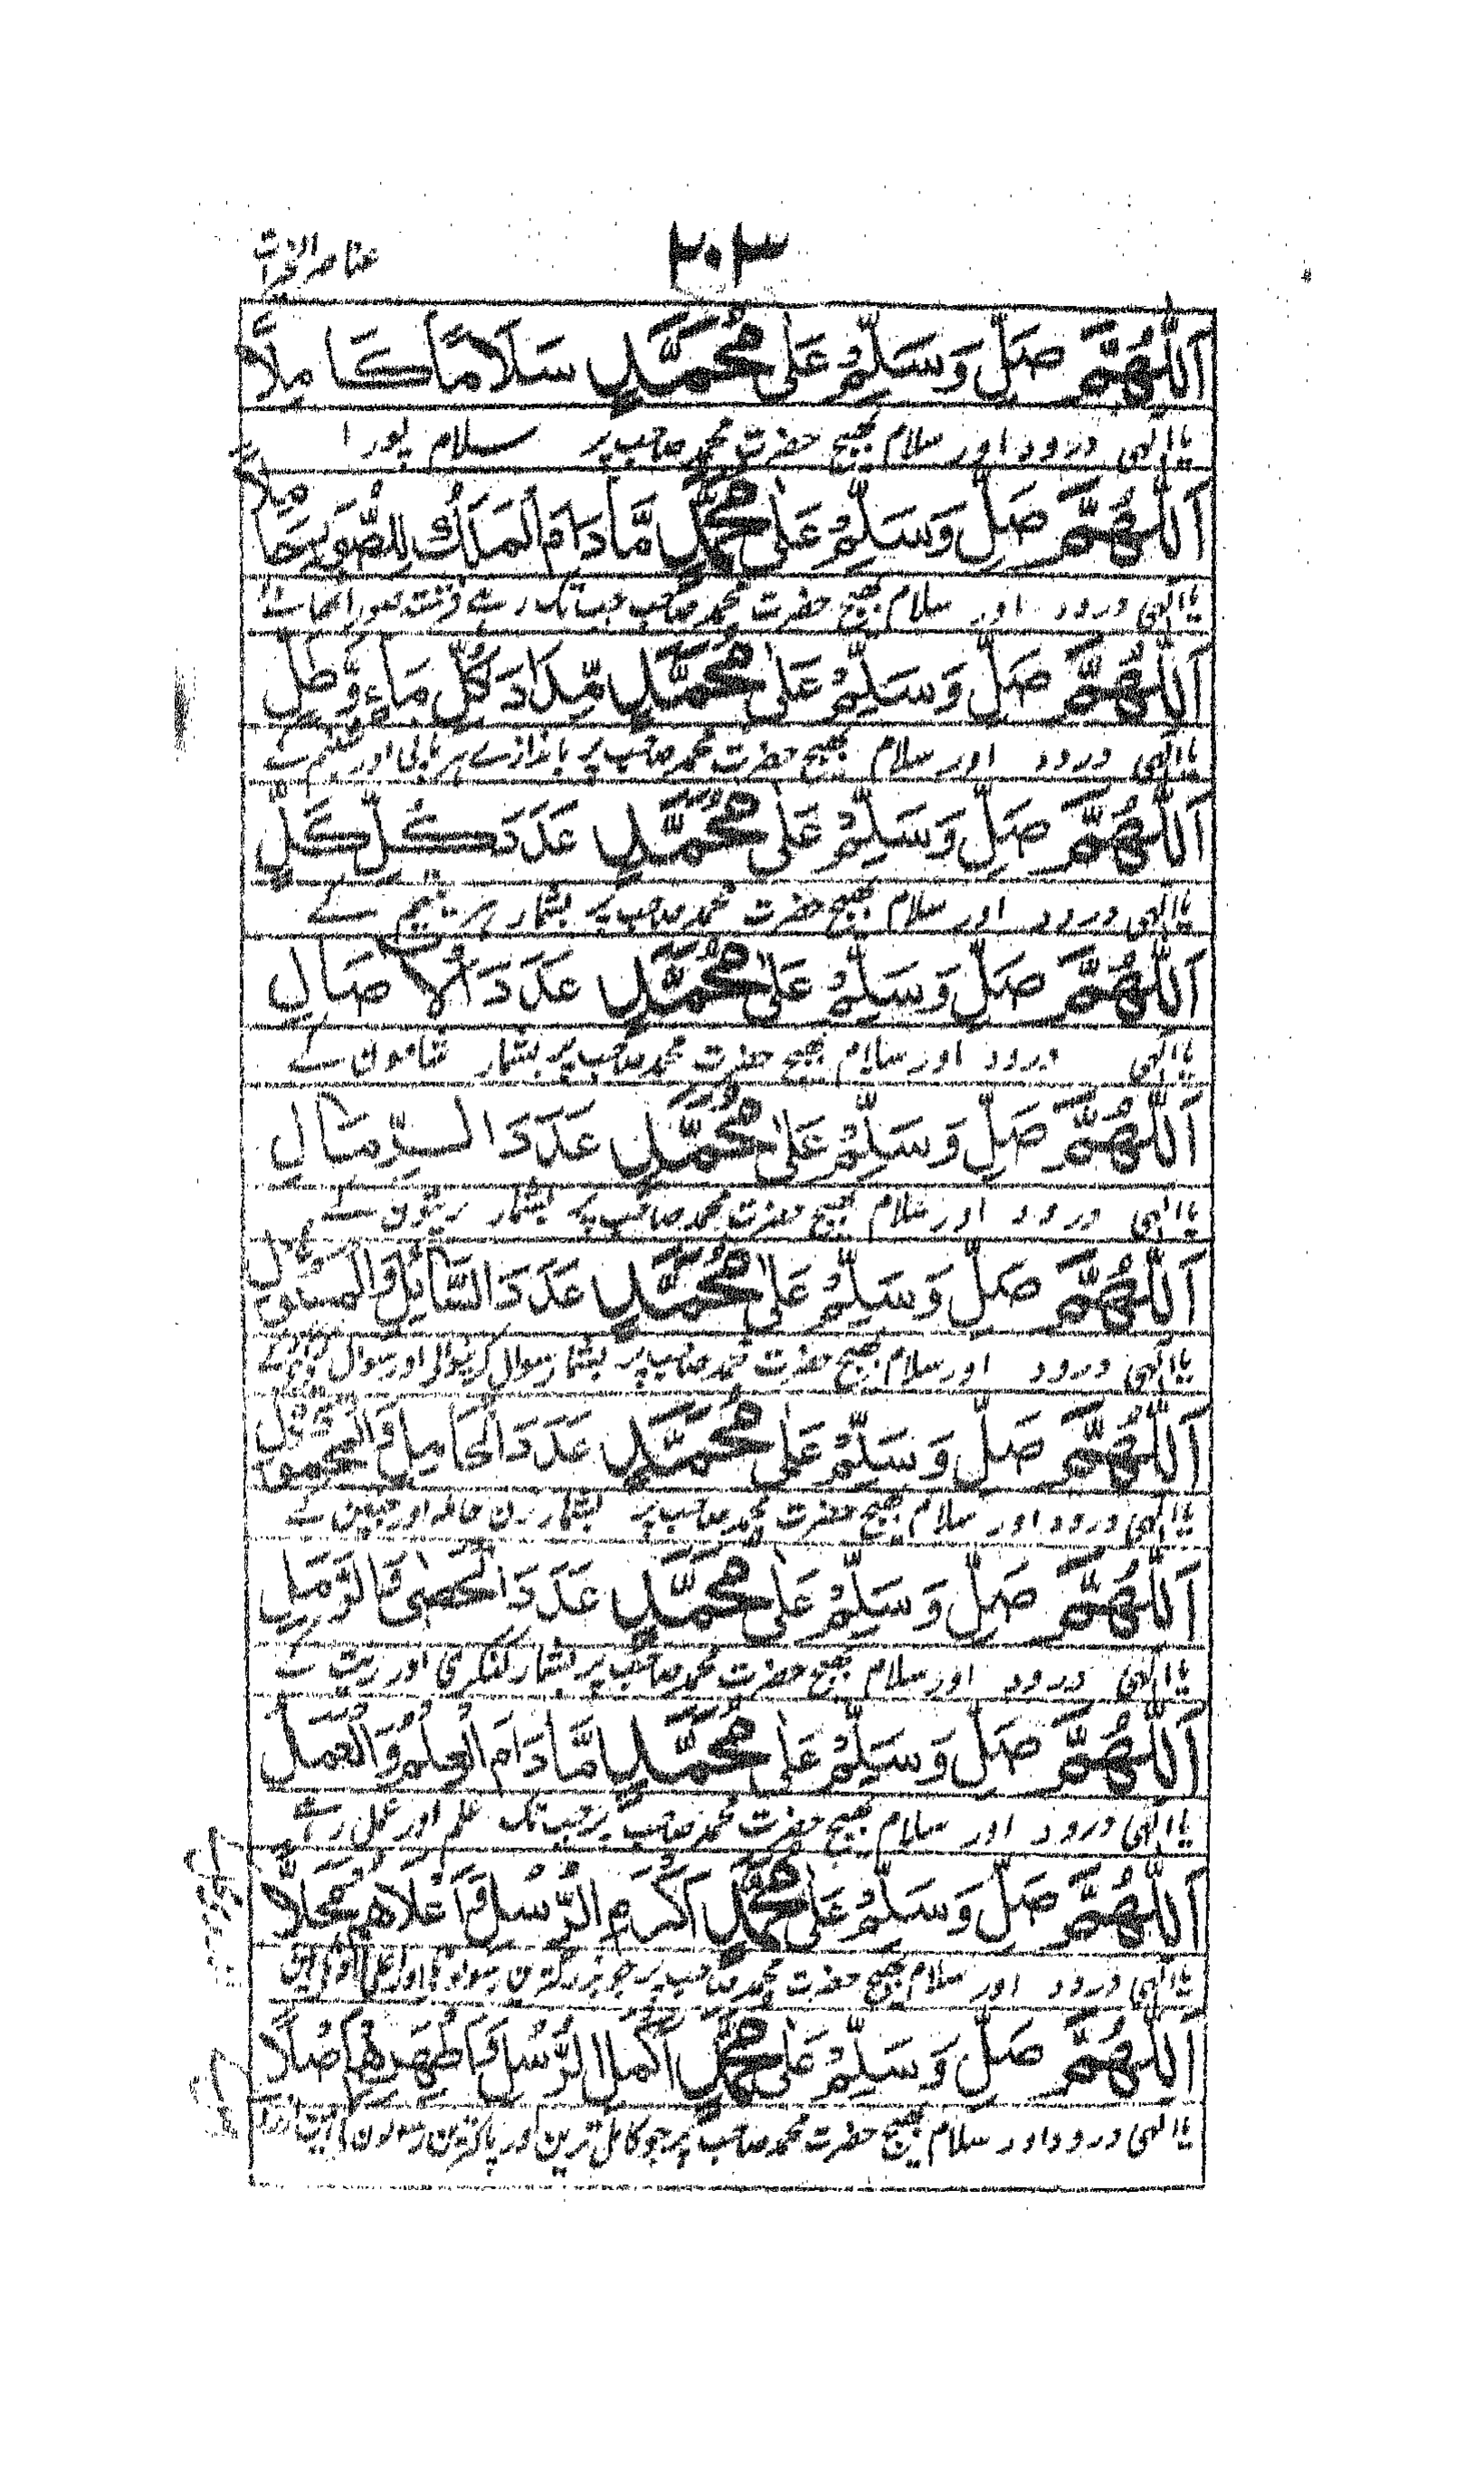 ٣٠٣
عناصر الخیرات
اَللّٰهُمَّ صَلِّ وَسَلِّمْ عَلٰى مُحَمَّدٍ سَلَامًا كَامِلًا
یا الٰہی درود اور سلام بھیج حضرت محمد صاحب پر سلام پورا
اَللّٰهُمَّ صَلِّ وَسَلِّمْ عَلٰى مُحَمَّدٍ مَّا دَامَ الْمَلَكُ لِلصُّوْرِ حَامِلًا
یا الٰہی درود اور سلام بھیج حضرت محمد صاحب جب تک رہے فرشتہ صور اٹھائے
اَللّٰهُمَّ صَلِّ وَسَلِّمْ عَلٰى مُحَمَّدٍ مِّدَادَ كُلِّ مَاءٍ وَّطَلٍّ
یا الٰہی درود اور سلام بھیج حضرت محمد صاحب پر باندازے ہر پانی اور شبنم کے
اَللّٰهُمَّ صَلِّ وَسَلِّمْ عَلٰى مُحَمَّدٍ عَدَدَ كُلِّ كَلٍّ
یا الٰہی درود اور سلام بھیج حضرت محمد صاحب پر بشمار ہر یتیم کے
اَللّٰهُمَّ صَلِّ وَسَلِّمْ عَلٰى مُحَمَّدٍ عَدَدَ الْاٰصَالِ
یا الٰہی درود اور سلام بھیج حضرت محمد صاحب پر بشمار شامون کے
اَللّٰهُمَّ صَلِّ وَسَلِّمْ عَلٰى مُحَمَّدٍ عَدَدَ الرِّمَالِ
یا الٰہی درود اور سلام بھیج حضرت محمد صاحب پر بشمار ریتون کے
اَللّٰهُمَّ صَلِّ وَسَلِّمْ عَلٰى مُحَمَّدٍ عَدَدَ السَّائِلِ وَالْمَسْئُوْلِ
یا الٰہی درود اور سلام بھیج حضرت محمد صاحب پر بشمار سوال کرنیوالے اور سوال
اَللّٰهُمَّ صَلِّ وَسَلِّمْ عَلٰى مُحَمَّدٍ عَدَدَ الْحَامِلِ وَالْمَحْمُوْلِ
یا الٰہی درود اور سلام بھیج حضرت محمد صاحب پر بشمار زن حاملہ اور جنین کے
اَللّٰهُمَّ صَلِّ وَسَلِّمْ عَلٰى مُحَمَّدٍ عَدَدَ الْحَصٰى وَالرَّمْلِ
یا الٰہی درود اور سلام بھیج حضرت محمد صاحب پر بشمار کنکری اور ریت کے
اَللّٰهُمَّ صَلِّ وَسَلِّمْ عَلٰى مُحَمَّدٍ مَّا دَامَ الْعِلْمُ وَالْعَمَلُ
یا الٰہی درود اور سلام بھیج حضرت محمد صاحب پر جب تک علم اور عمل رہے
اَللّٰهُمَّ صَلِّ وَسَلِّمْ عَلٰى مُحَمَّدٍ اَكْرَمِ الرُّسُلِ وَاَعْلَاهُمْ مَحَلًّا
یا الٰہی درود اور سلام بھیج حضرت محمد صاحب پر جو بزرگترین رسولونکا اور اعلیٰ
اَللّٰهُمَّ صَلِّ وَسَلِّمْ عَلٰى مُحَمَّدٍ اَكْمَلِ الرُّسُلِ وَاَطْهَرِهِمْ اَصْلًا
یا الٰہی درود اور سلام بھیج حضرت محمد صاحب پر جو کامل ترین اور پاکترین رسولون